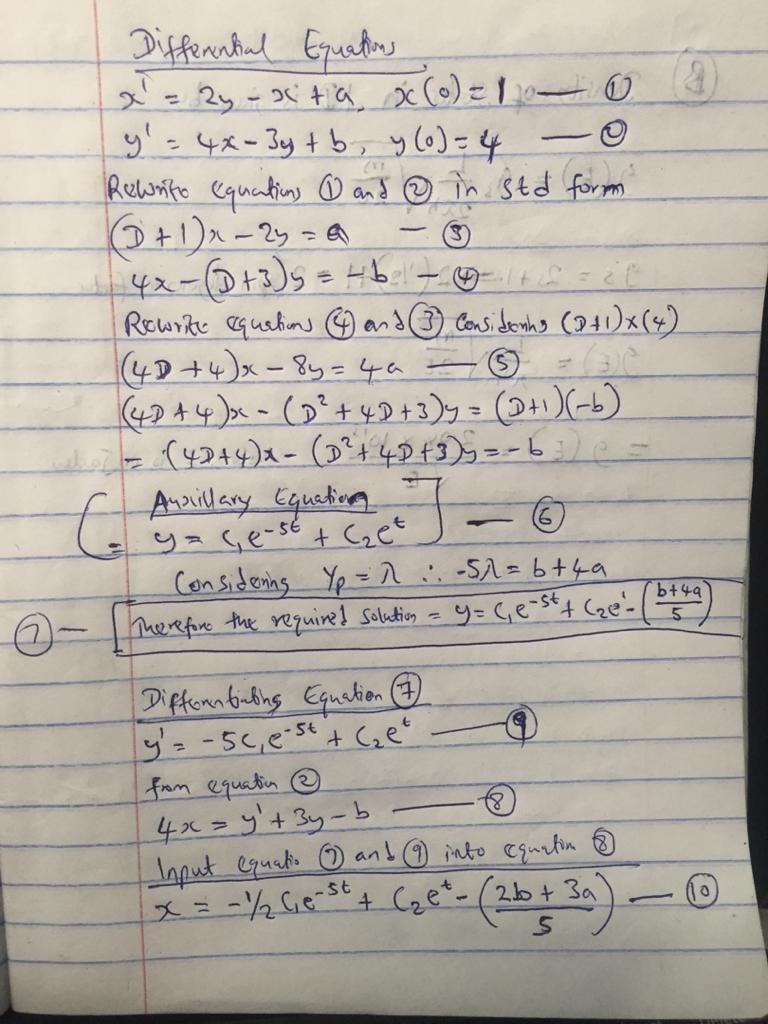 Differential Equations
x' = 2y - x + a, x(0) = 1 — ①
y' = 4x - 3y + b, y(0) = 4 — ②
Rewrite equations ① and ② in std form
(D + 1)x - 2y = a — ③
4x - (D+3)y = -b — ④
Rewrite equations ④ and ③ Considering (D+1)x(4)
(4D + 4)x - 8y = 4a — ⑤
(4D + 4)x - (D² + 4D + 3)y = (D+1)(-b)
= (4D+4)x - (D² + 4D + 3)y = -b
Auxillary Equation
= y = C₁e^-5t + C₂e^t — ⑥
Considering Yp = λ ∴ -5λ = b + 4a
⑦ — Therefore the required Solution = y = C₁e^-5t + C₂e^t - (b+4a/5)
Differentiating Equation ⑦
y' = -5C₁e^-5t + C₂e^t — ⑨
from equation ②
4x = y' + 3y - b — ⑧
Input equatio ⑦ and ⑨ into equation ⑧
x = -1/2 C₁e^-5t + C₂e^t - (2b + 3a/5) — ⑩